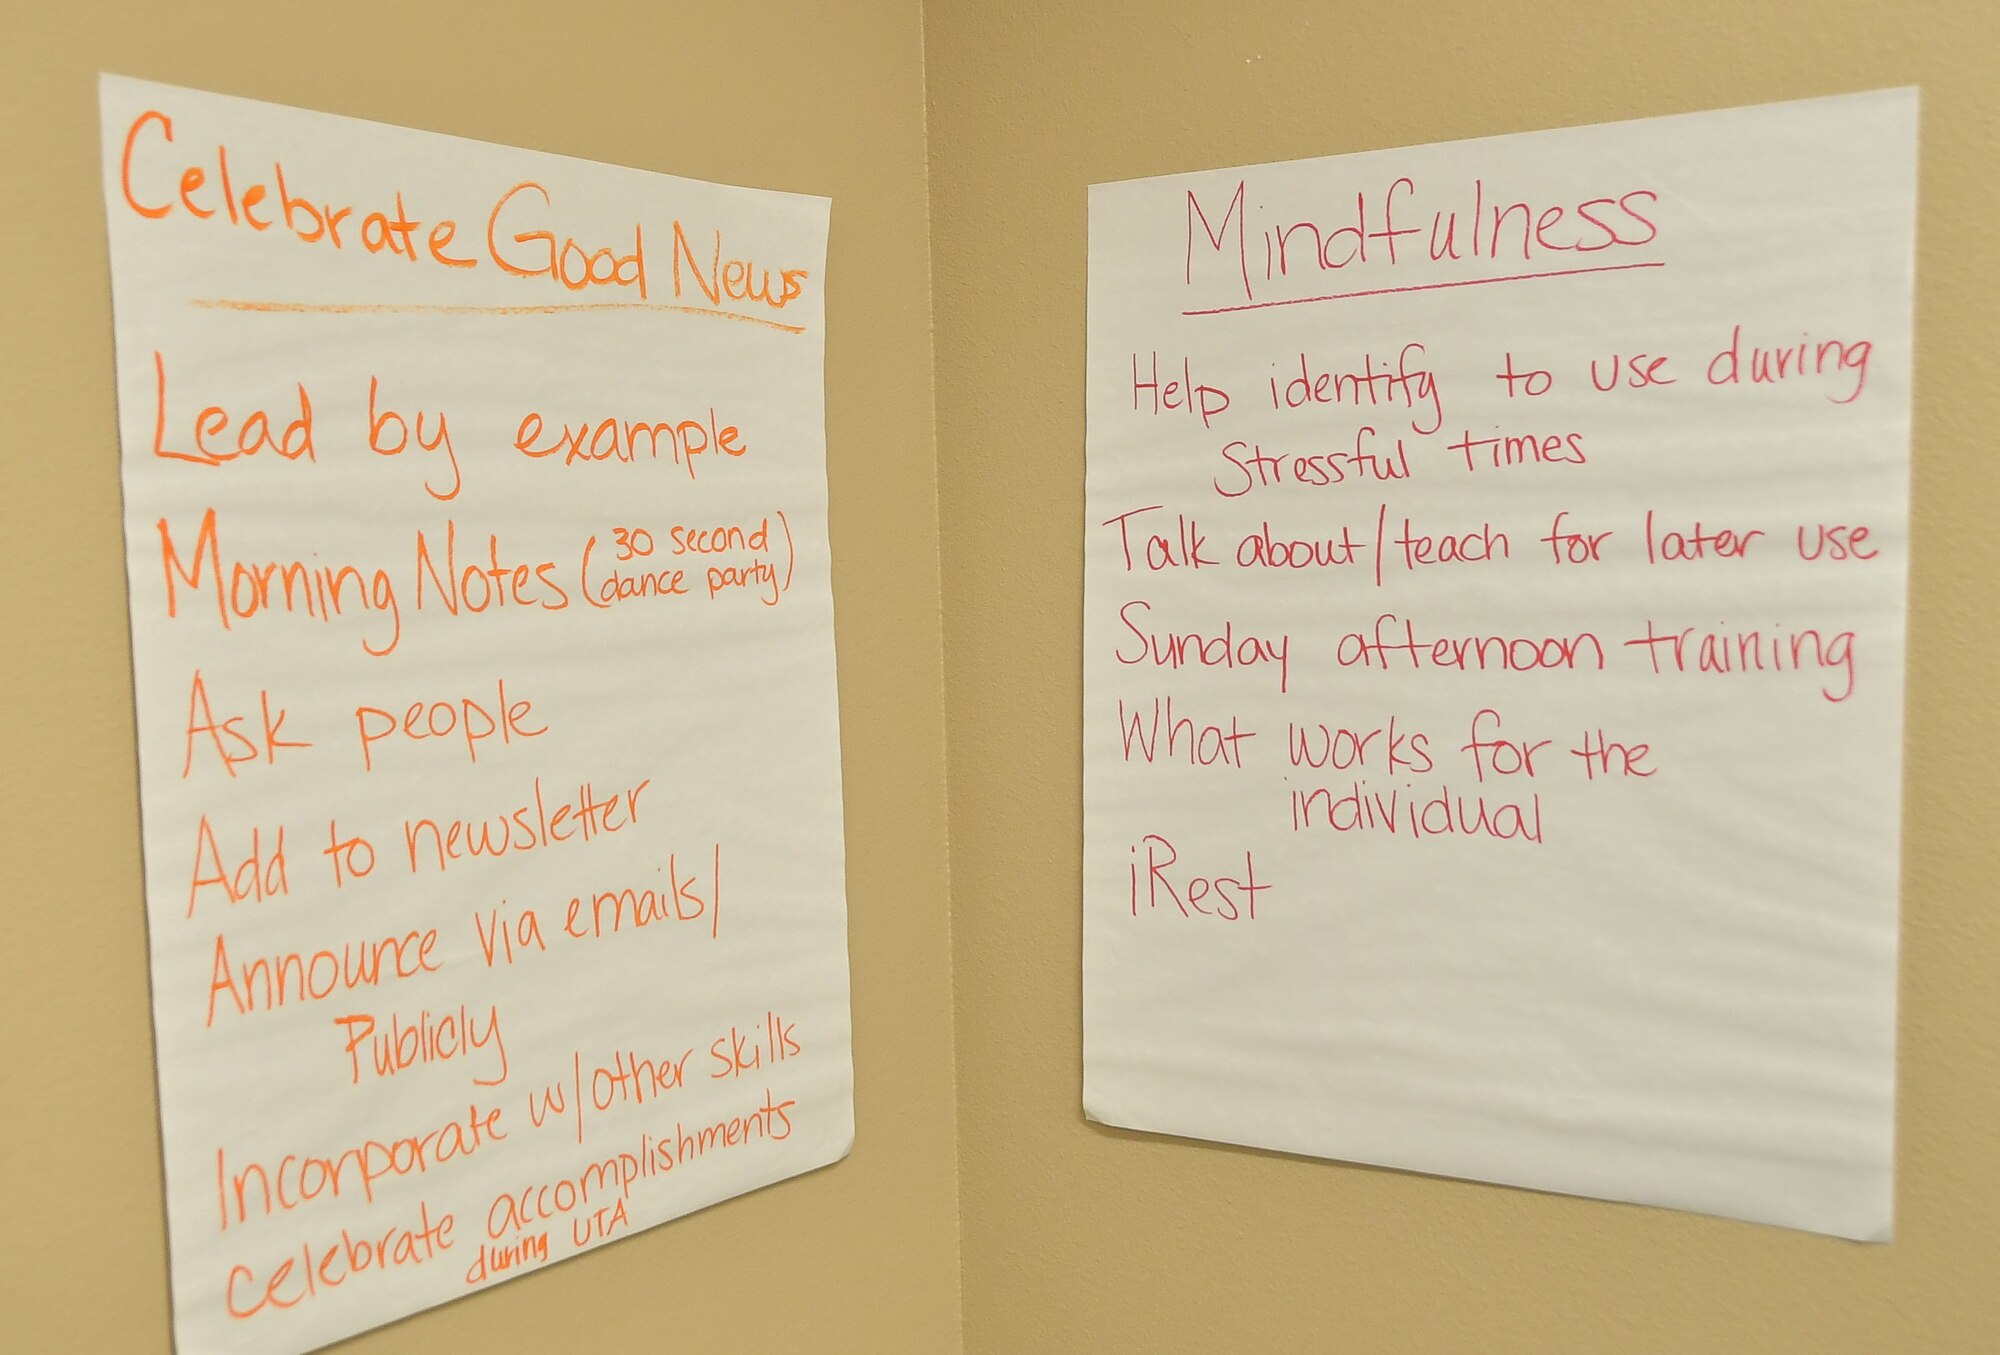 Celebrate Good News
Lead by example
Morning Notes (30 second
dance party)
Ask people
Add to newsletter
Announce via emails/
Publicly
Incorporate w/other skills
celebrate accomplishments
during UTA
Mindfulness
Help identify to use during
Stressful times
Talk about/teach for later use
Sunday afternoon training
What works for the
individual
iRest